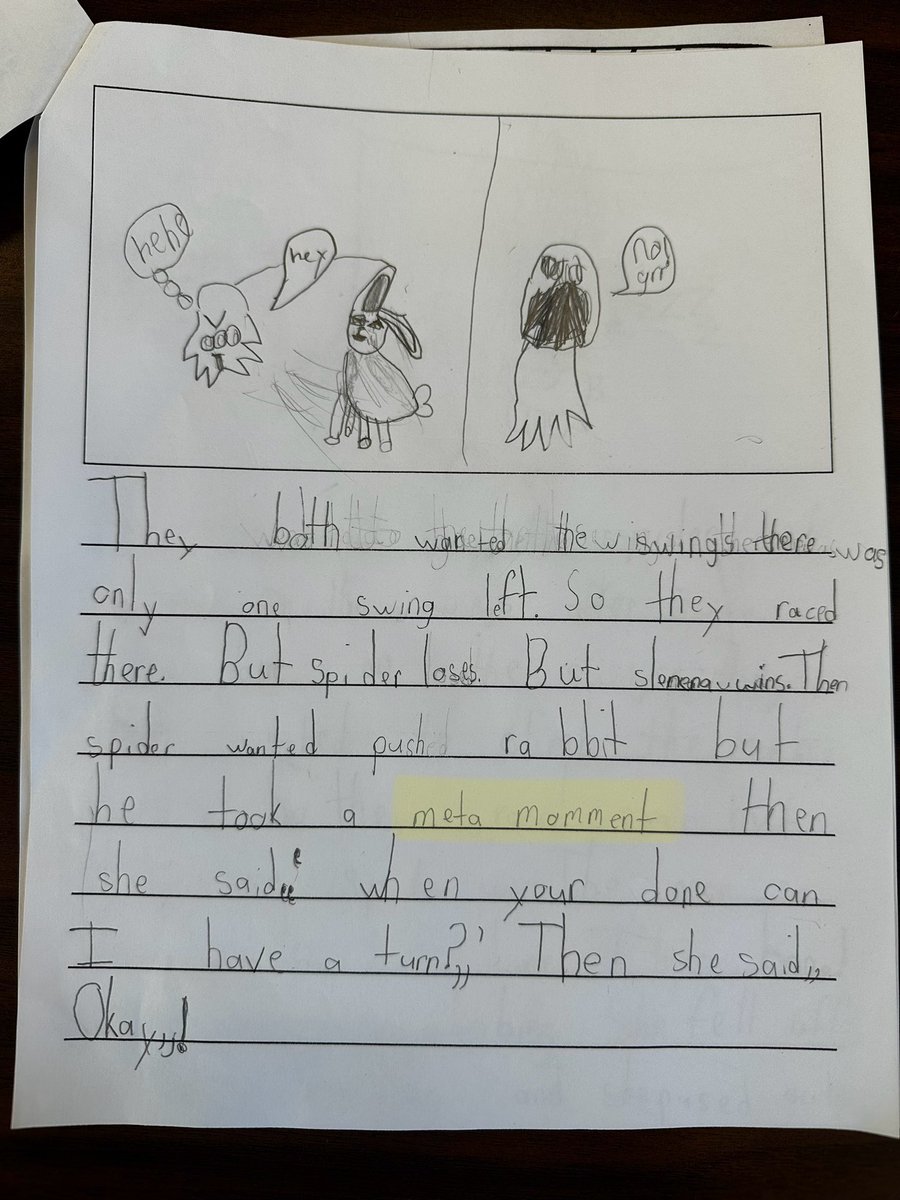 hehe
hey
no!
grr
They both wanted the swings there was
only one swing left. So they raced
there. But spider loses. But wins. Then
spider wanted pushed rabbit but
he took a meta momment then
she said,, when your done can
I have a turn?,," Then she said,,
Okay,,!